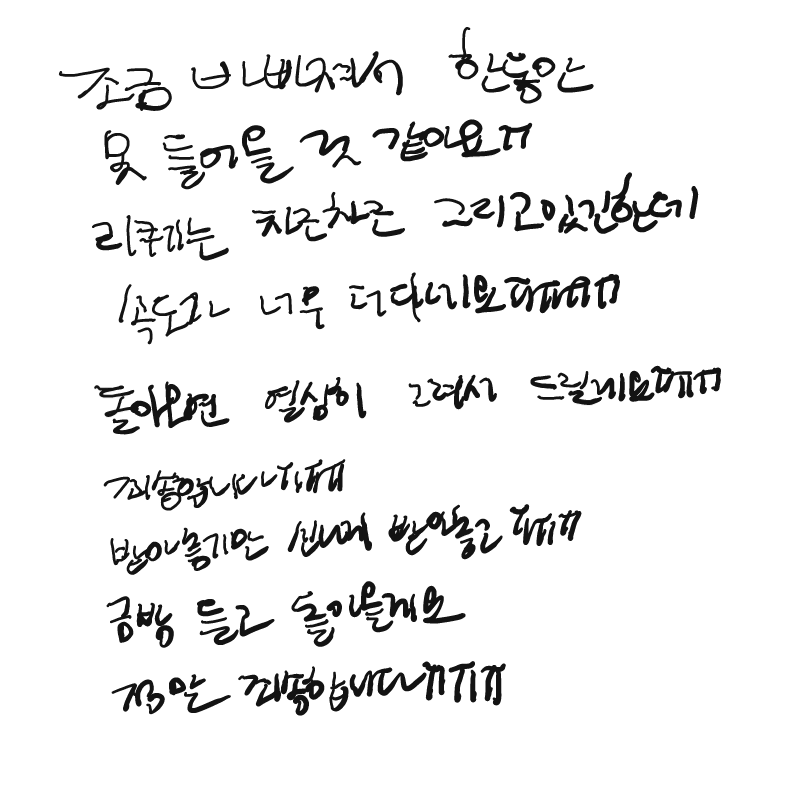 조금 바빠져서 한동안
못 들어올 것 같아요ㅠ
리퀘는 차근차근 그리고있긴한데
속도가 너무 더디네요ㅠㅠㅠㅠ
돌아오면 열심히 그려서 드릴게요ㅠㅠㅠ
죄송합니다ㅠㅠㅠ
받아놓기만 신나게 받아놓고 ㅠㅠㅠ
금방 들고 돌아올게요
정말 죄송합니다ㅠㅠㅠㅠ